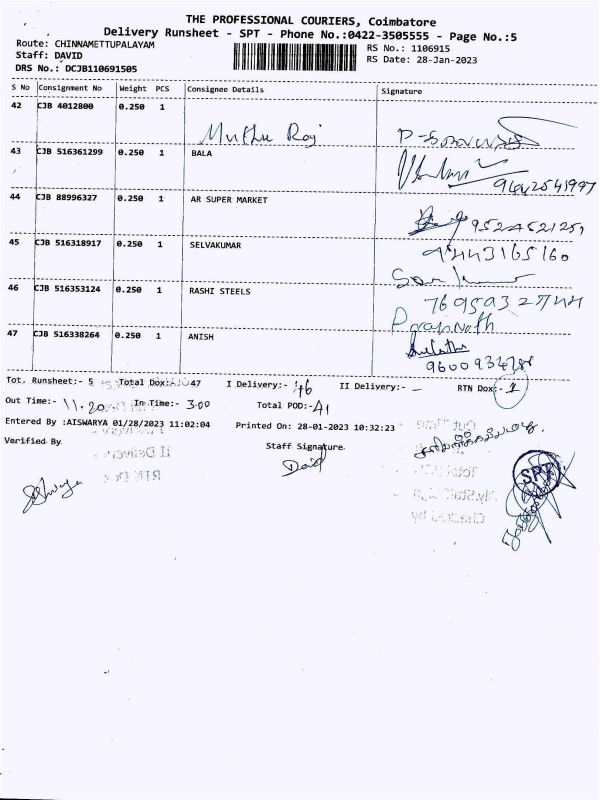 THE PROFESSIONAL COURIERS, Coimbatore
Delivery Runsheet - SPT - Phone No.:0422-3505555 - Page No.:5
Route: CHINNAMETTUPALAYAM
RS No.: 1106915
Staff: DAVID
RS Date: 28-Jan-2023
DRS No.: DCJB110691505
S No Consignment No Weight PCS Consignee Details Signature
42 CJB 4012800 0.250 1
Muthu Raj
43 CJB 516361299 0.250 1 BALA
9642541997
44 CJB 88996327 0.250 1 AR SUPER MARKET
9524521251
45 CJB 516318917 0.250 1 SELVAKUMAR
9443165160
46 CJB 516353124 0.250 1 RASHI STEELS
7695932744
47 CJB 516338264 0.250 1 ANISH
Tot. Runsheet:- 5 Total Dox: 47 I Delivery:- 46 II Delivery:- - RTN Dox:- 1
Out Time:- 11.20 In Time:- 3.00 Total POD:- 41
Entered By :AISWARYA 01/28/2023 11:02:04 Printed On: 28-01-2023 10:32:23
Verified By
Staff Signature
David
SPT